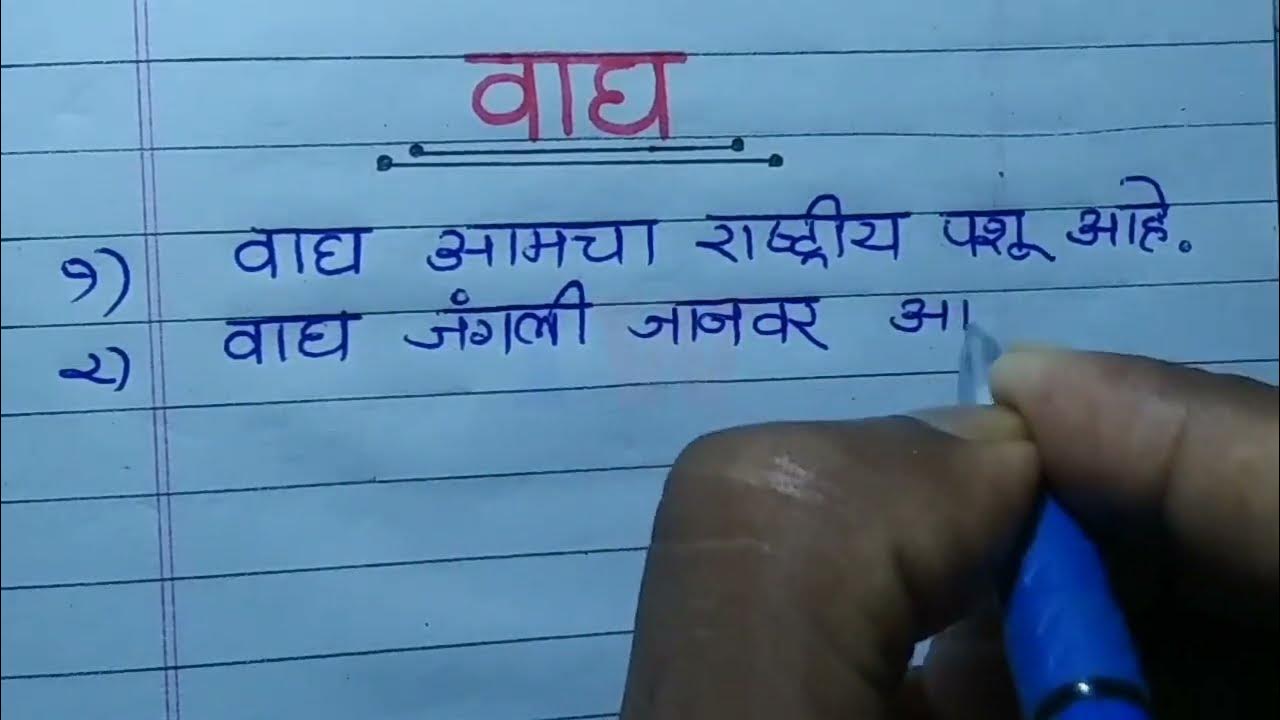 वाघ
१) वाघ आमचा राष्ट्रीय पशू आहे.
२) वाघ जंगली जानवर आ